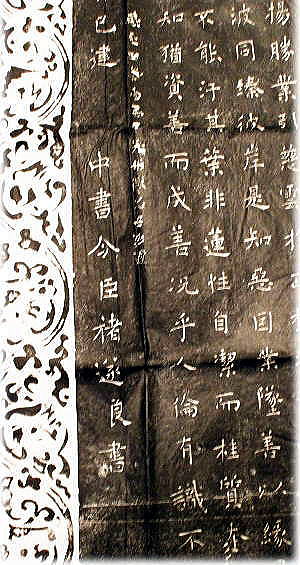 揚勝業引慈雲於西
波同臻彼岸是知惡因業墜善以緣
不能汙其葉非蓮性自潔而桂質本
知猶資善而成善況乎人倫有識不
已建 中書令臣褚遂良書